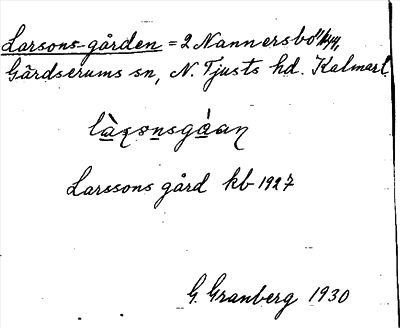 Larsons-gården = 2 Nannersbo
Gärdserums sn, N. Tjusts hd. Kalmar l.
Larssons gård kb 1927
G. Granberg 1930